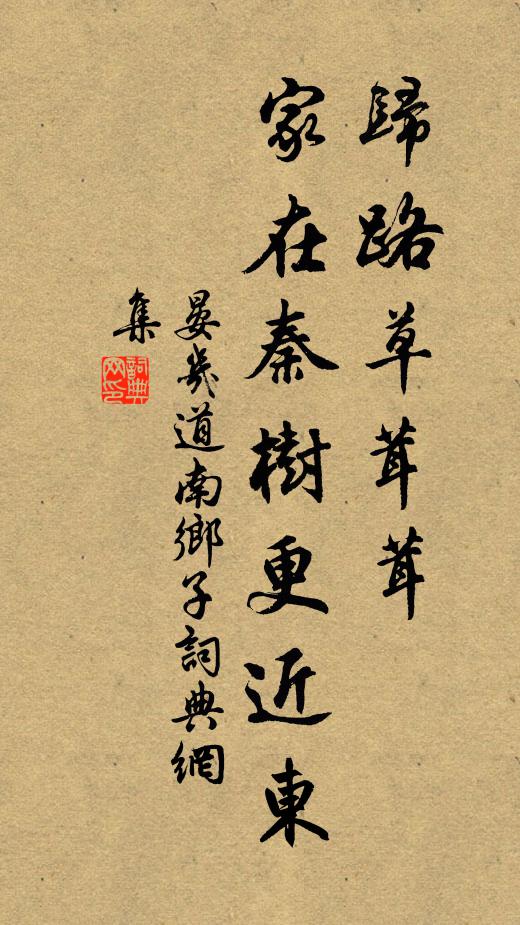 歸路草茸茸
家在秦樹更近東
晏幾道南鄉子詞典網
集
詞典
网印